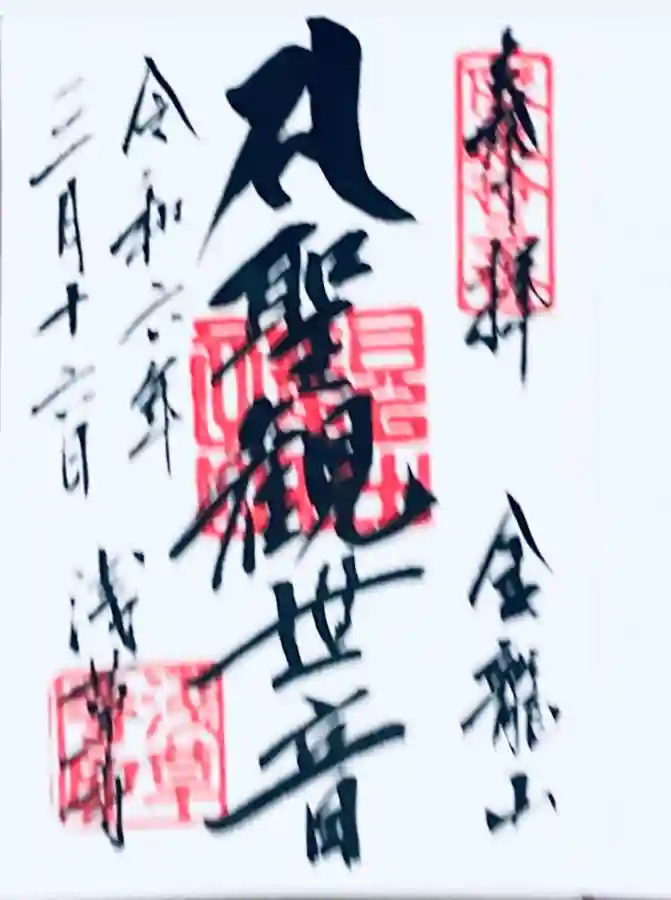 奉拝
金龍山
聖観世音
令和六年
三月十六日
浅草寺